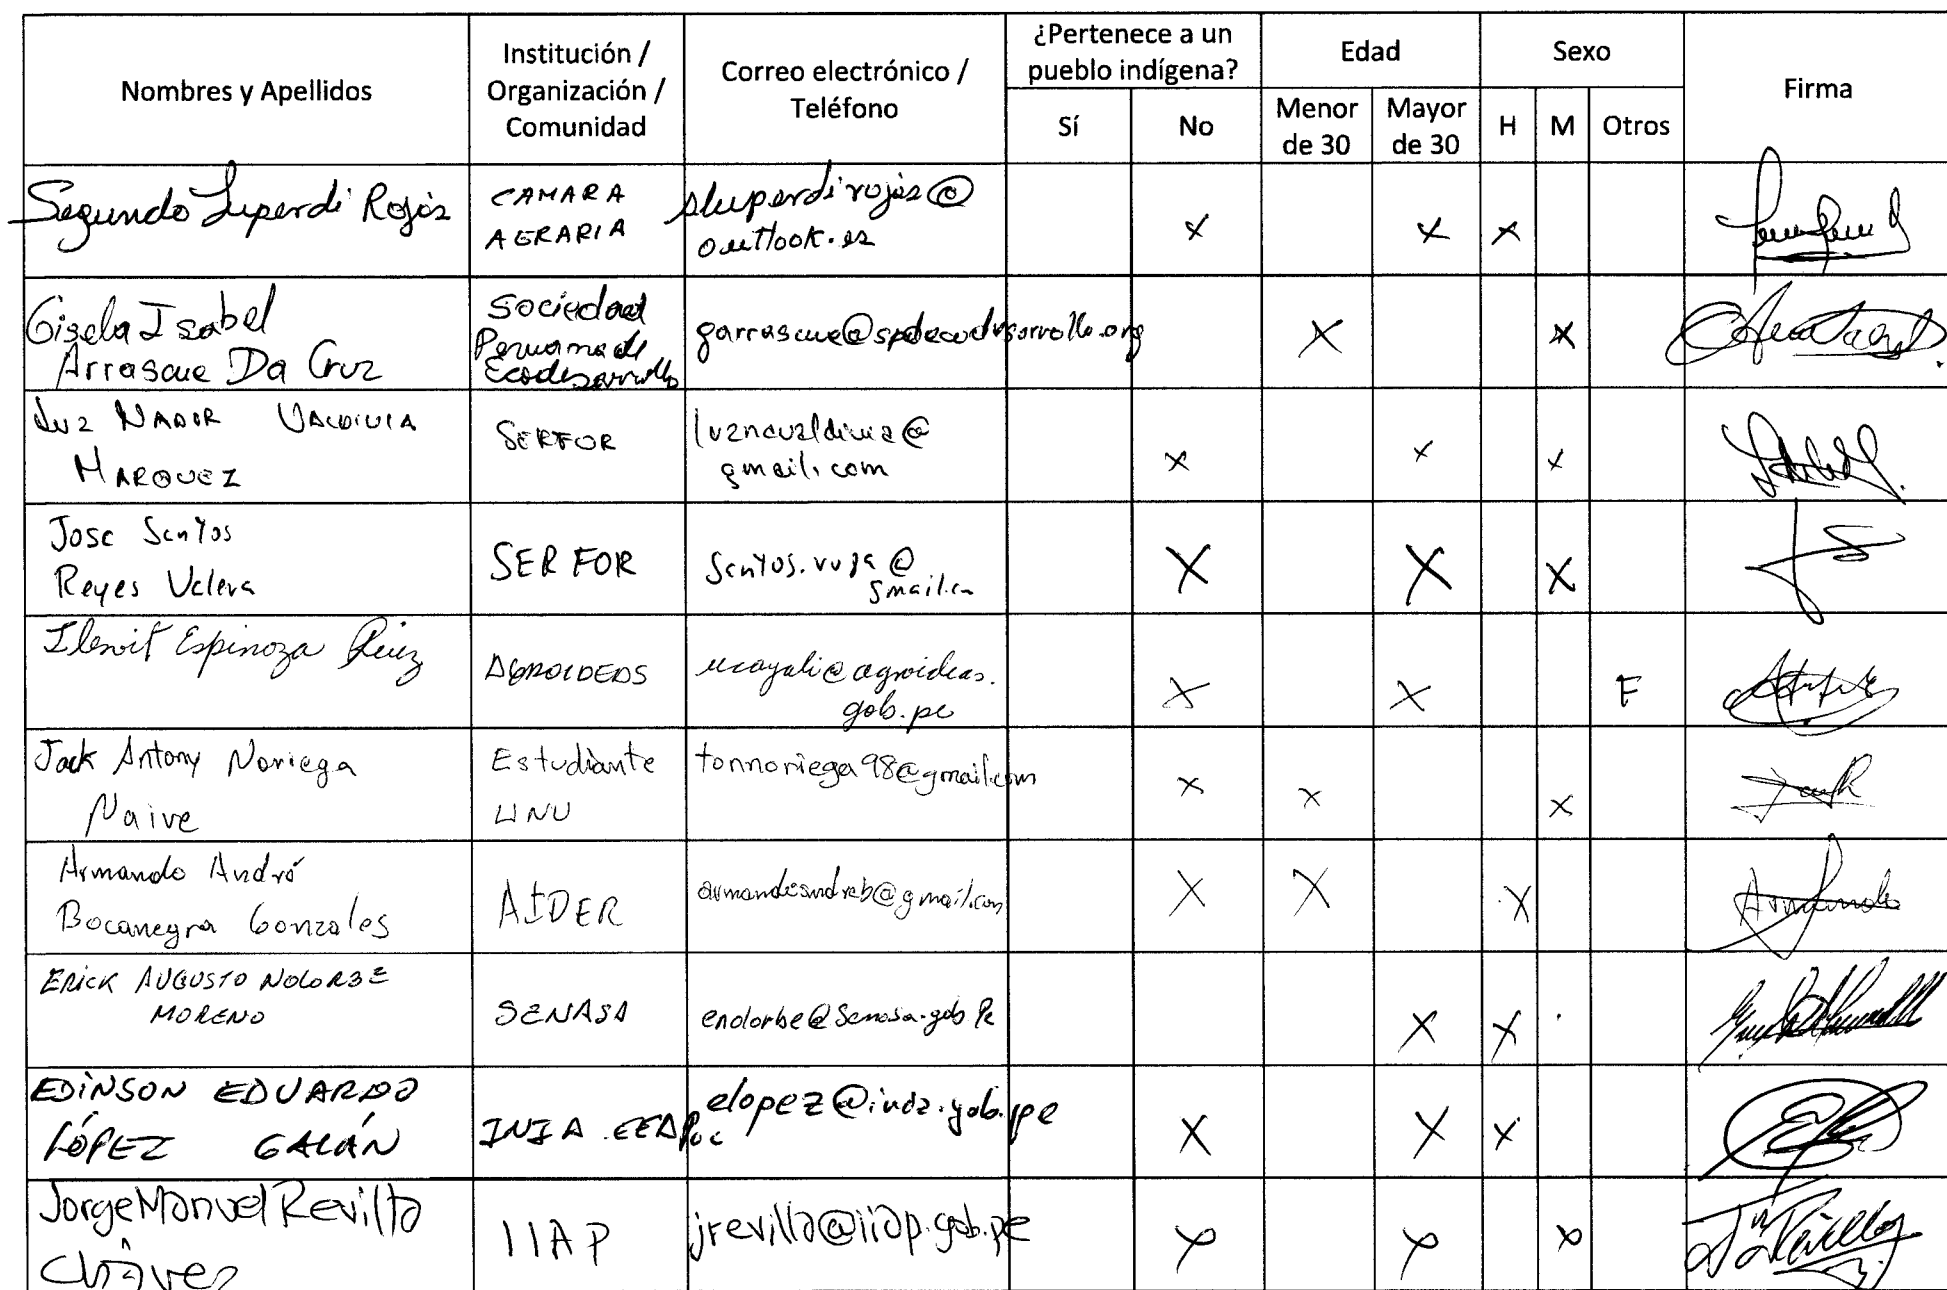 Nombres y Apellidos
Institución /
Organización /
Comunidad
Correo electrónico /
Teléfono
¿Pertenece a un
pueblo indígena?
Edad
Sexo
Firma
Sí
No
Menor
de 30
Mayor
de 30
H
M
Otros
Segundo Luperdi Rojas
CAMARA
AGRARIA
sluperdirojas@
outlook.es
X
X
X
Gisela Isabel
Arrascue Da Cruz
Sociedad
Peruana de
Ecodesarrollo
garrascue@spdecodesarrollo.org
X
X
Luz NADIR VALDIVIA
MARQUEZ
SERFOR
luznavaldivia@
gmail.com
X
X
X
Jose Santos
Reyes Valera
SERFOR
X
X
X
Espinoza Ruiz
AGROIDEAS
ucayali@agroideas.
gob.pe
X
X
F
Jack Antony Noriega
Naive
Estudiante
UNU
tonnoriega98@gmail.com
X
X
X
Armando André
Bocanegra Gonzales
AIDER
armandoandreb@gmail.com
X
X
X
ERICK AUGUSTO NOLORBE
MORENO
SENASA
enolorbe@Senasa.gob.Pe
X
X
EDINSON EDUARDO
LÓPEZ GALÁN
INIA
elopez@inia.gob.pe
X
X
X
Jorge Manuel Revilla
Chávez
IIAP
jrevilla@iiap.gob.pe
X
X
X